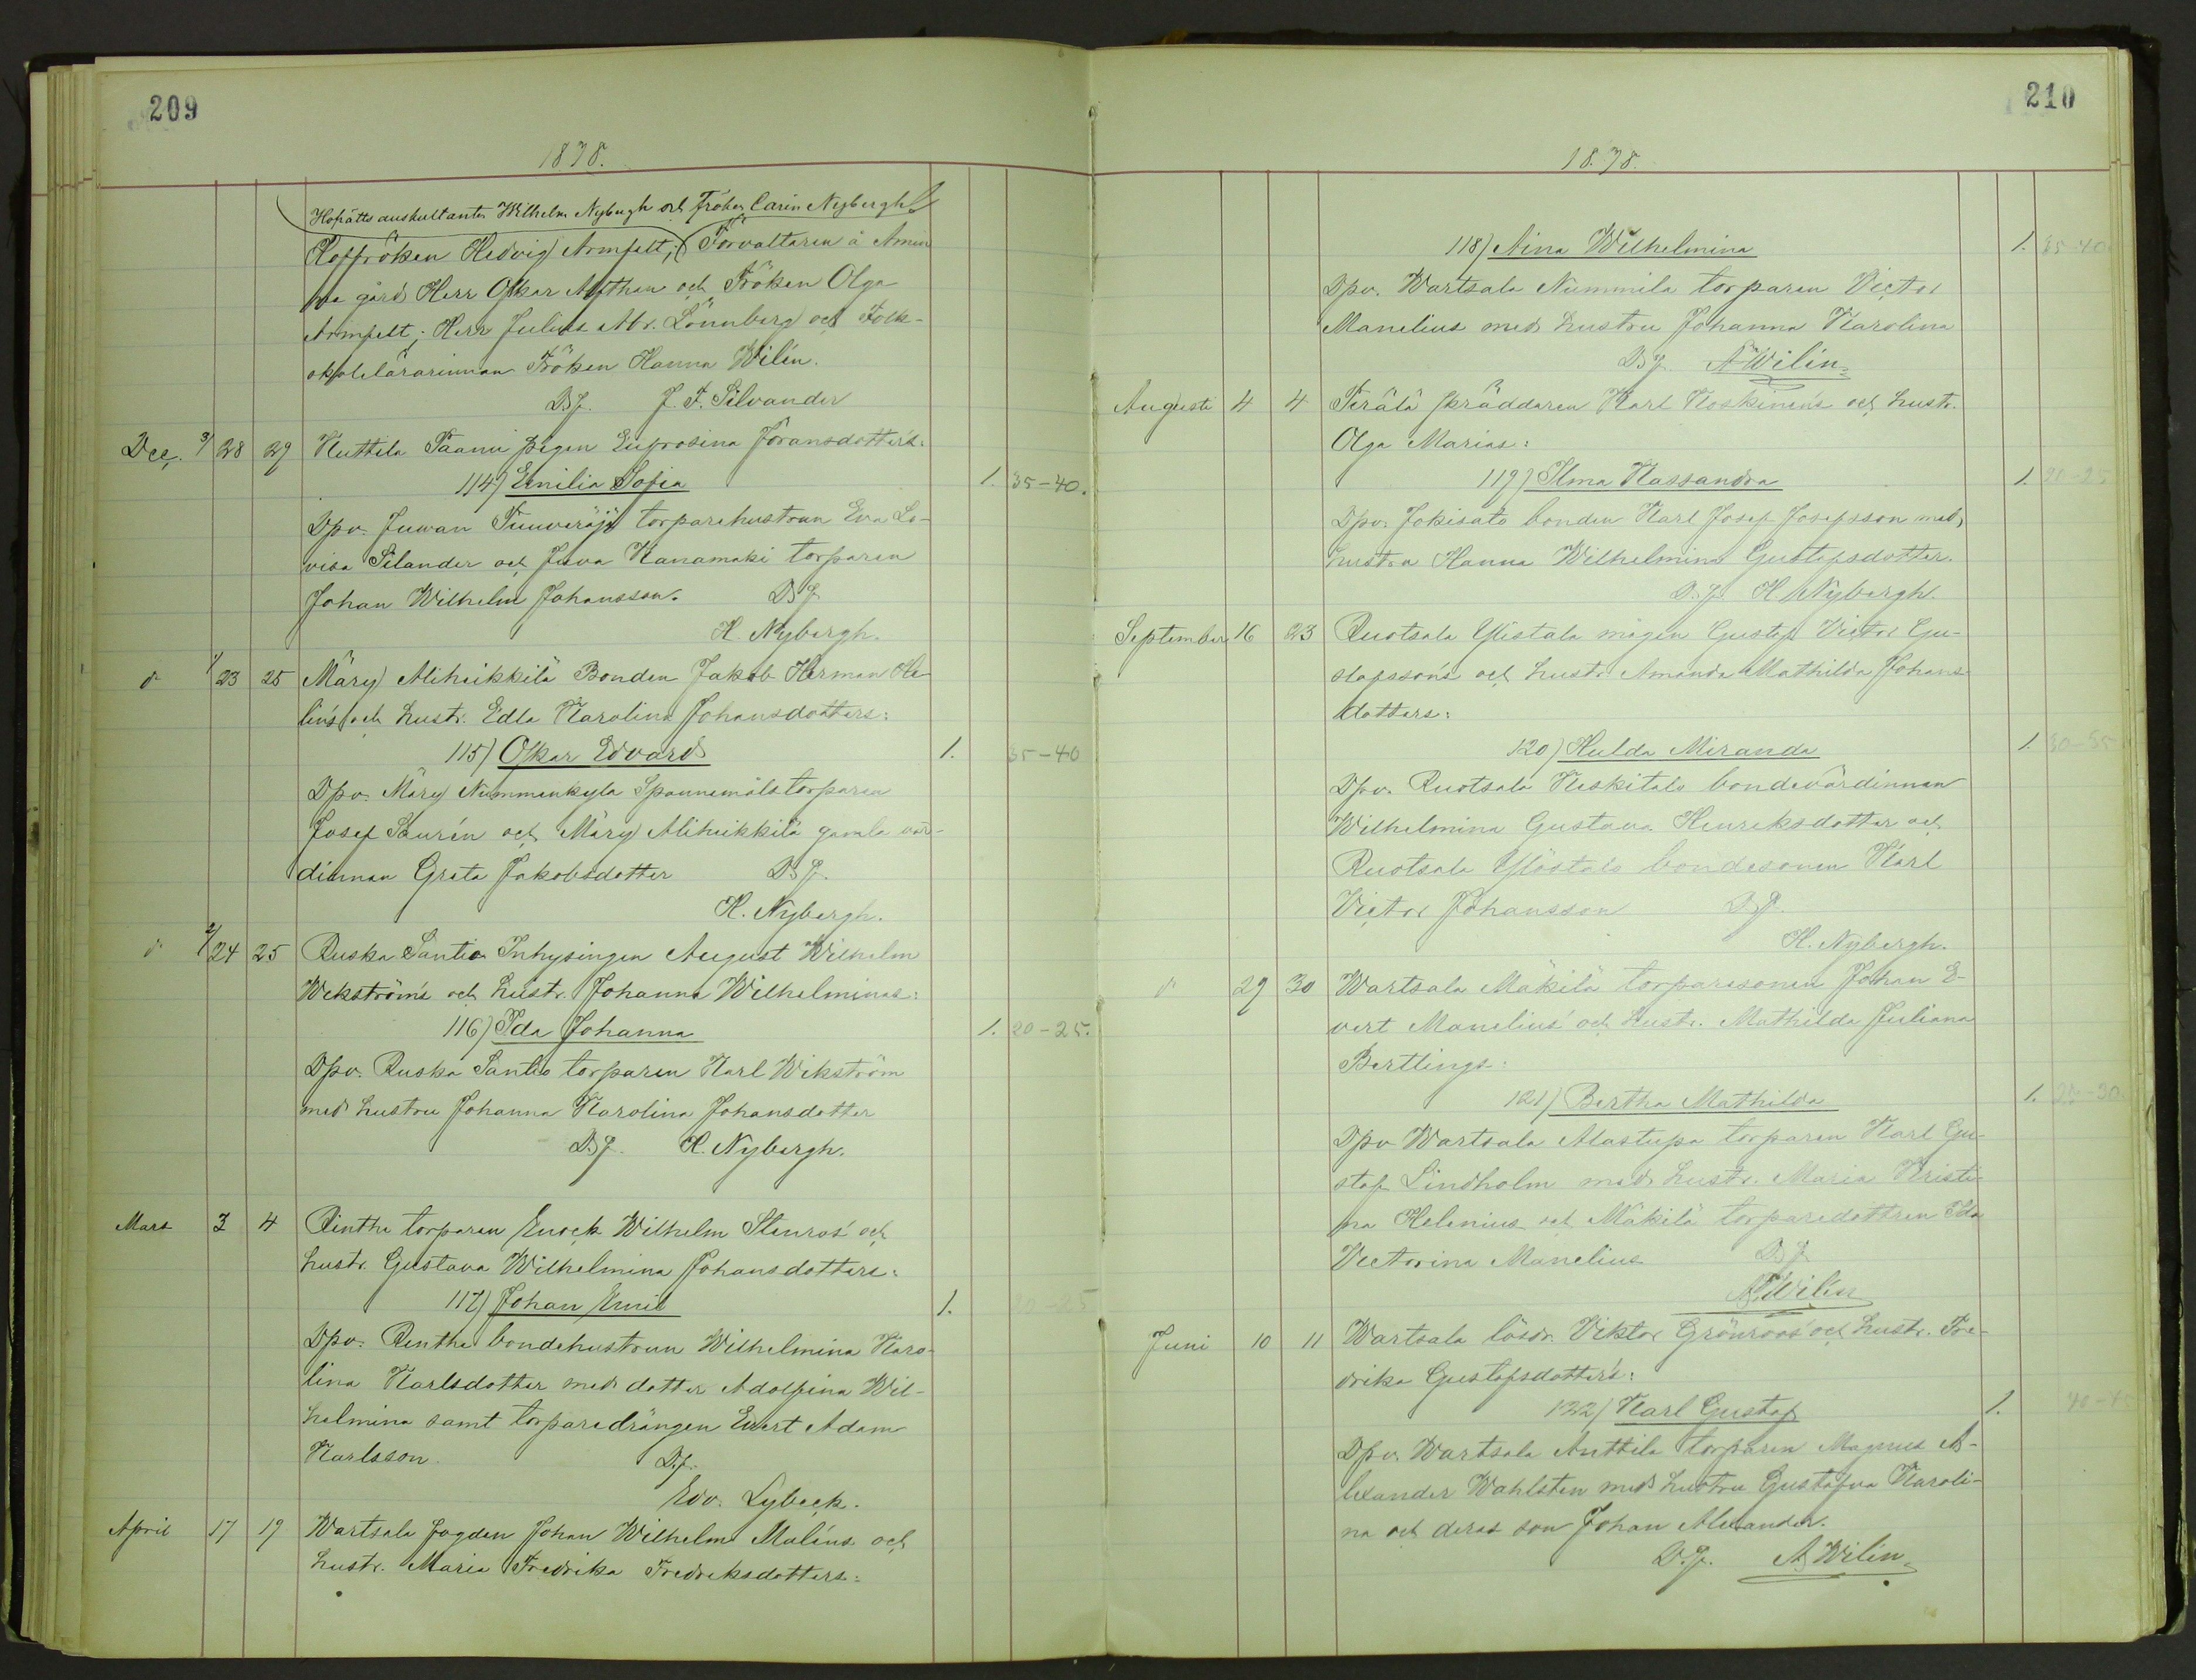 209
1878.
Hofrätts auskultanten Wilhelm Nybergh och Fröken Carin Nybergh
Hoffröken Hedvig Armfelt; Förvaltaren å Amin
ne gård Herr Oskar Alfthan och Fröken Olga
Armfelt; Herr Julius Alb. Lönnberg och Folk-
skolelärarinnan Fröken Hanna Wilén.
Dsf. J. F. Silvander
Dec. 3/ 28 29 Huttila Paanu pigan Eufrosina Göransdotters:
114) Emilia Sofia 1. 35-40.
Dpv. Juwan torparehustrun Eva Lo-
visa Silander och Juva Kanamäki torparen
Johan Wilhelm Johansson. Dsf
H. Nybergh.
d 1/ 23 25 Märy Alihäikkilä Bonden Jakob Herman He-
lins och hustr. Edla Karolina Johansdotters:
115) Oskar Edvard 1. 35-40
Dpv. Märy Nummenkylä Spannemålstorparen
Josef Saurén och Märy Alihäikkilä gamla vär-
dinnan Greta Jakobsdotter Dsf.
H. Nybergh.
d 2/ 24 25 Ruska Santio Inhysingen August Wilhelm
Wekströms och hustr. Johanna Wilhelminas:
116) Ida Johanna 1. 20-25.
Dpv. Ruska Santio torparen Karl Wikström
med hustru Johanna Karolina Johansdotter
Dsf. H. Nybergh.
Mars 3 4 Rinthe torparen Enock Wilhelm Stenros' och
hustr. Gustava Wilhelmina Johansdotters:
117) Johan Emil 1.
Dpv. Rentha bondehustrun Wilhelmina Karo-
lina Karlsdotter med dotter Adolfina Wil-
helmina samt torparedrängen Evert Adam
Karlsson. Dsf.
Edv. Lybeck.
April 17 19 Wartsala fogden Johan Wilhelm Maléns och
hustr. Maria Fredrika Fredriksdotters:
210
1878.
118) Aina Wilhelmina 1. 35-40
Dpv. Wartsala Nummila torparen Victor
Manelius med hustru Johanna Karolina
Dsf. A Wilén
Augusti 4 4 Terälä skräddaren Karl Koskinens och hustr.
Olga Marias:
119) Ilma Kassandra 1. 20-25
Dpv. Jokisato bonden Karl Josef Josefsson med
hustru Hanna Wilhelmina Gustafsdotter.
Dsf. H. Nybergh.
September 16 23 Ruotsala Ylistala mågen Gustaf Victor Gu-
stafssons och hustr. Amanda Mathilda Johans-
dotters:
120) Hulda Miranda 1. 30-35
Dpv. Ruotsala Keskitalo bondevärdinnan
Wilhelmina Gustava Henriksdotter och
Ruotsala Ylöstalo bondesonen Karl
Victor Johansson Dsf.
H. Nybergh.
d 29 30 Wartsala Mäkilä torparesonen Johan E-
vert Manelius' och hustr. Mathilda Juliana
Bertlings:
121) Bertha Mathilda 1. 25-30
Dpv Wartsala Alastupa torparen Karl Gu-
staf Lindholm med hustr. Maria Kristi-
na Helenius och Mäkilä torparedottren Ida
Victorina Manelius Dsf
A Wilén
Juni 10 11 Wartsala lösdr. Viktor Grönroos' och hustr. Fre-
drika Gustafsdotters:
122) Karl Gustaf 1. 40-45
Dpv. Wartsala Anttila torparen Magnus A-
lexander Wahlsten med hustru Gustafva Karoli-
na och deras son Johan Alexander.
Dsf. A Wilén